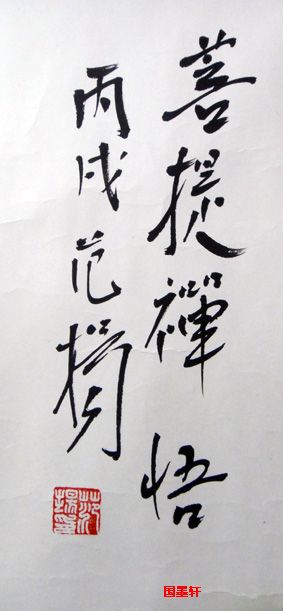 菩提禪悟
丙戌范揚
国墨轩